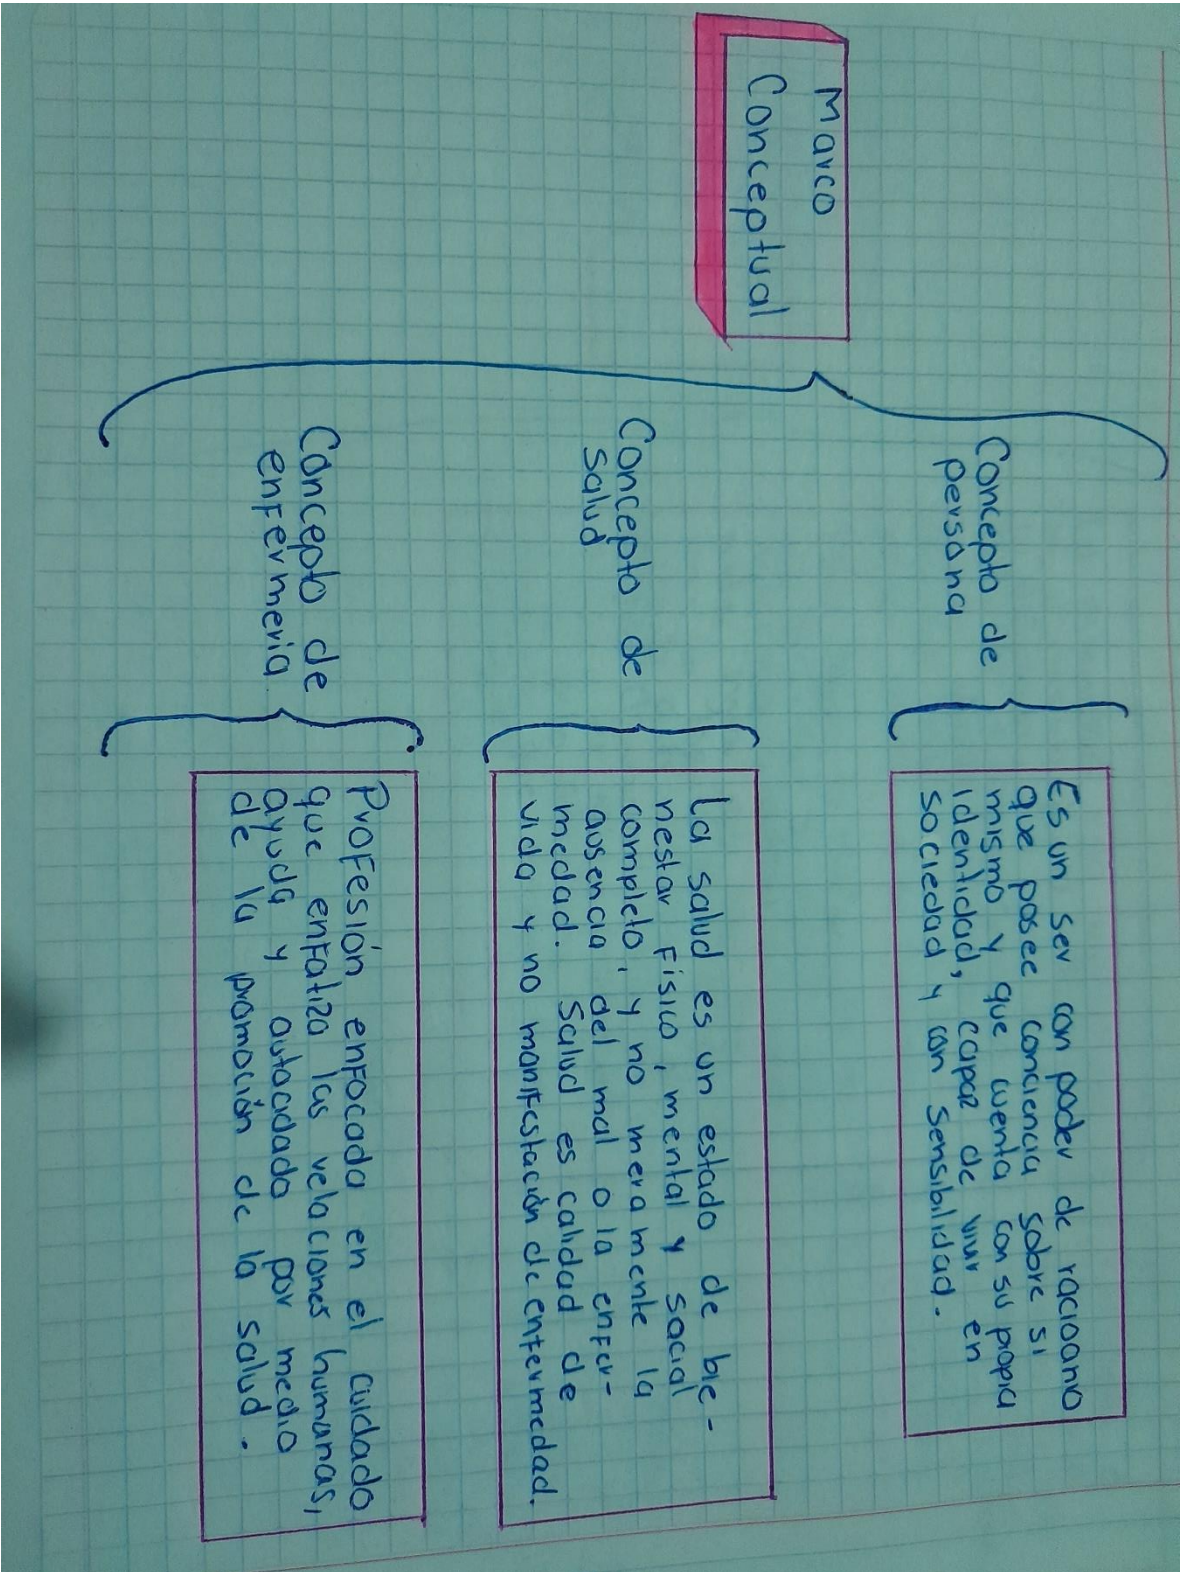 Marco
Conceptual
Concepto de
persona
Es un ser con poder de racioanio
que posee conciencia sobre si
mismo y que cuenta con su propia
identidad, capaz de vivir en
sociedad y con sensibilidad.
Concepto de
salud
La salud es un estado de bie-
nestar Físico, mental y social
completo, y no meramente la
ausencia del mal o la enfer-
medad. Salud es calidad de
vida y no manifestación de enfermedad.
Concepto de
enfermeria
Profesión enfocada en el cuidado
que enfatiza las relaciones humanas,
ayuda y autocidado por medio
de la promoción de la salud.